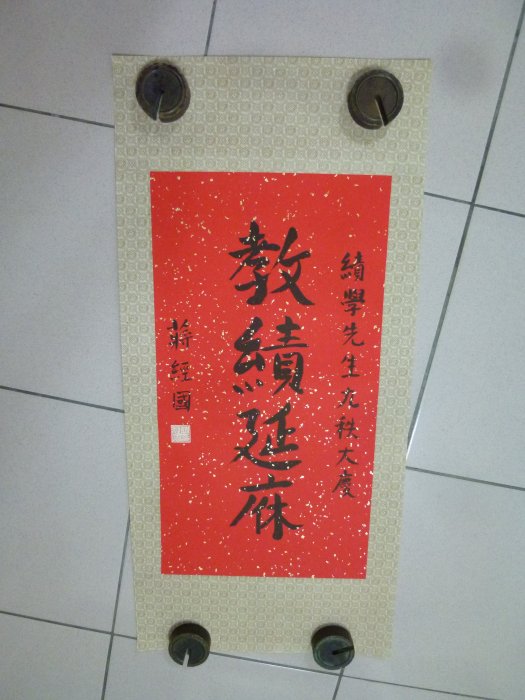 績學先生九秩大慶
教績延庥
蔣經國